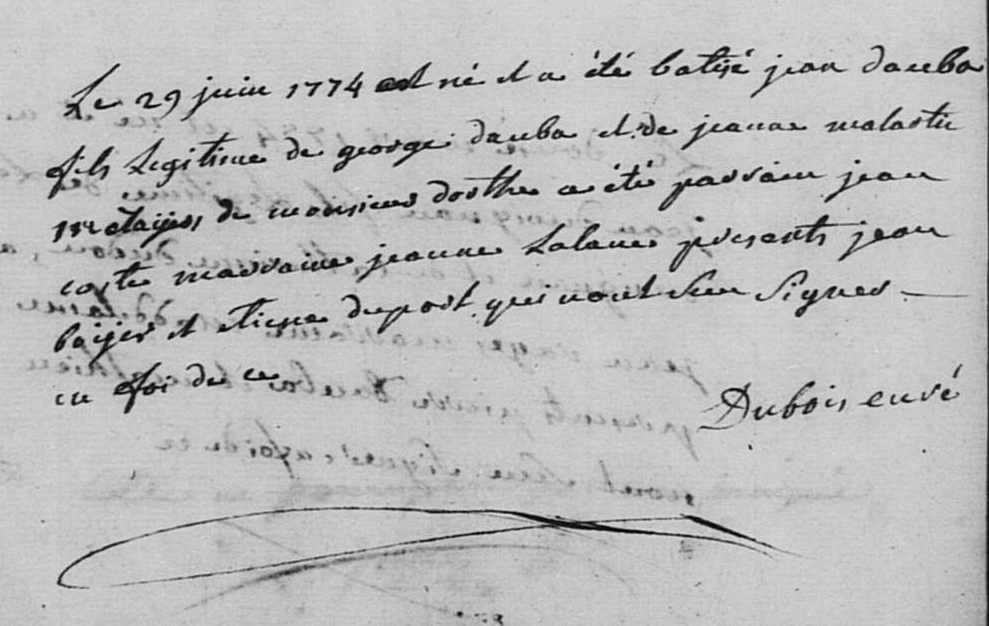 Le 29 juin 1774 est né et a été batisé jean dauba
fils Legitime de george dauba et de jeanne malartic
métayers de monsieur dosthe a été parrain jean
coste marraine jeanne Lalane presants jean
et etiene duport qui n'ont seu signer
en foi de ce
Dubois curé